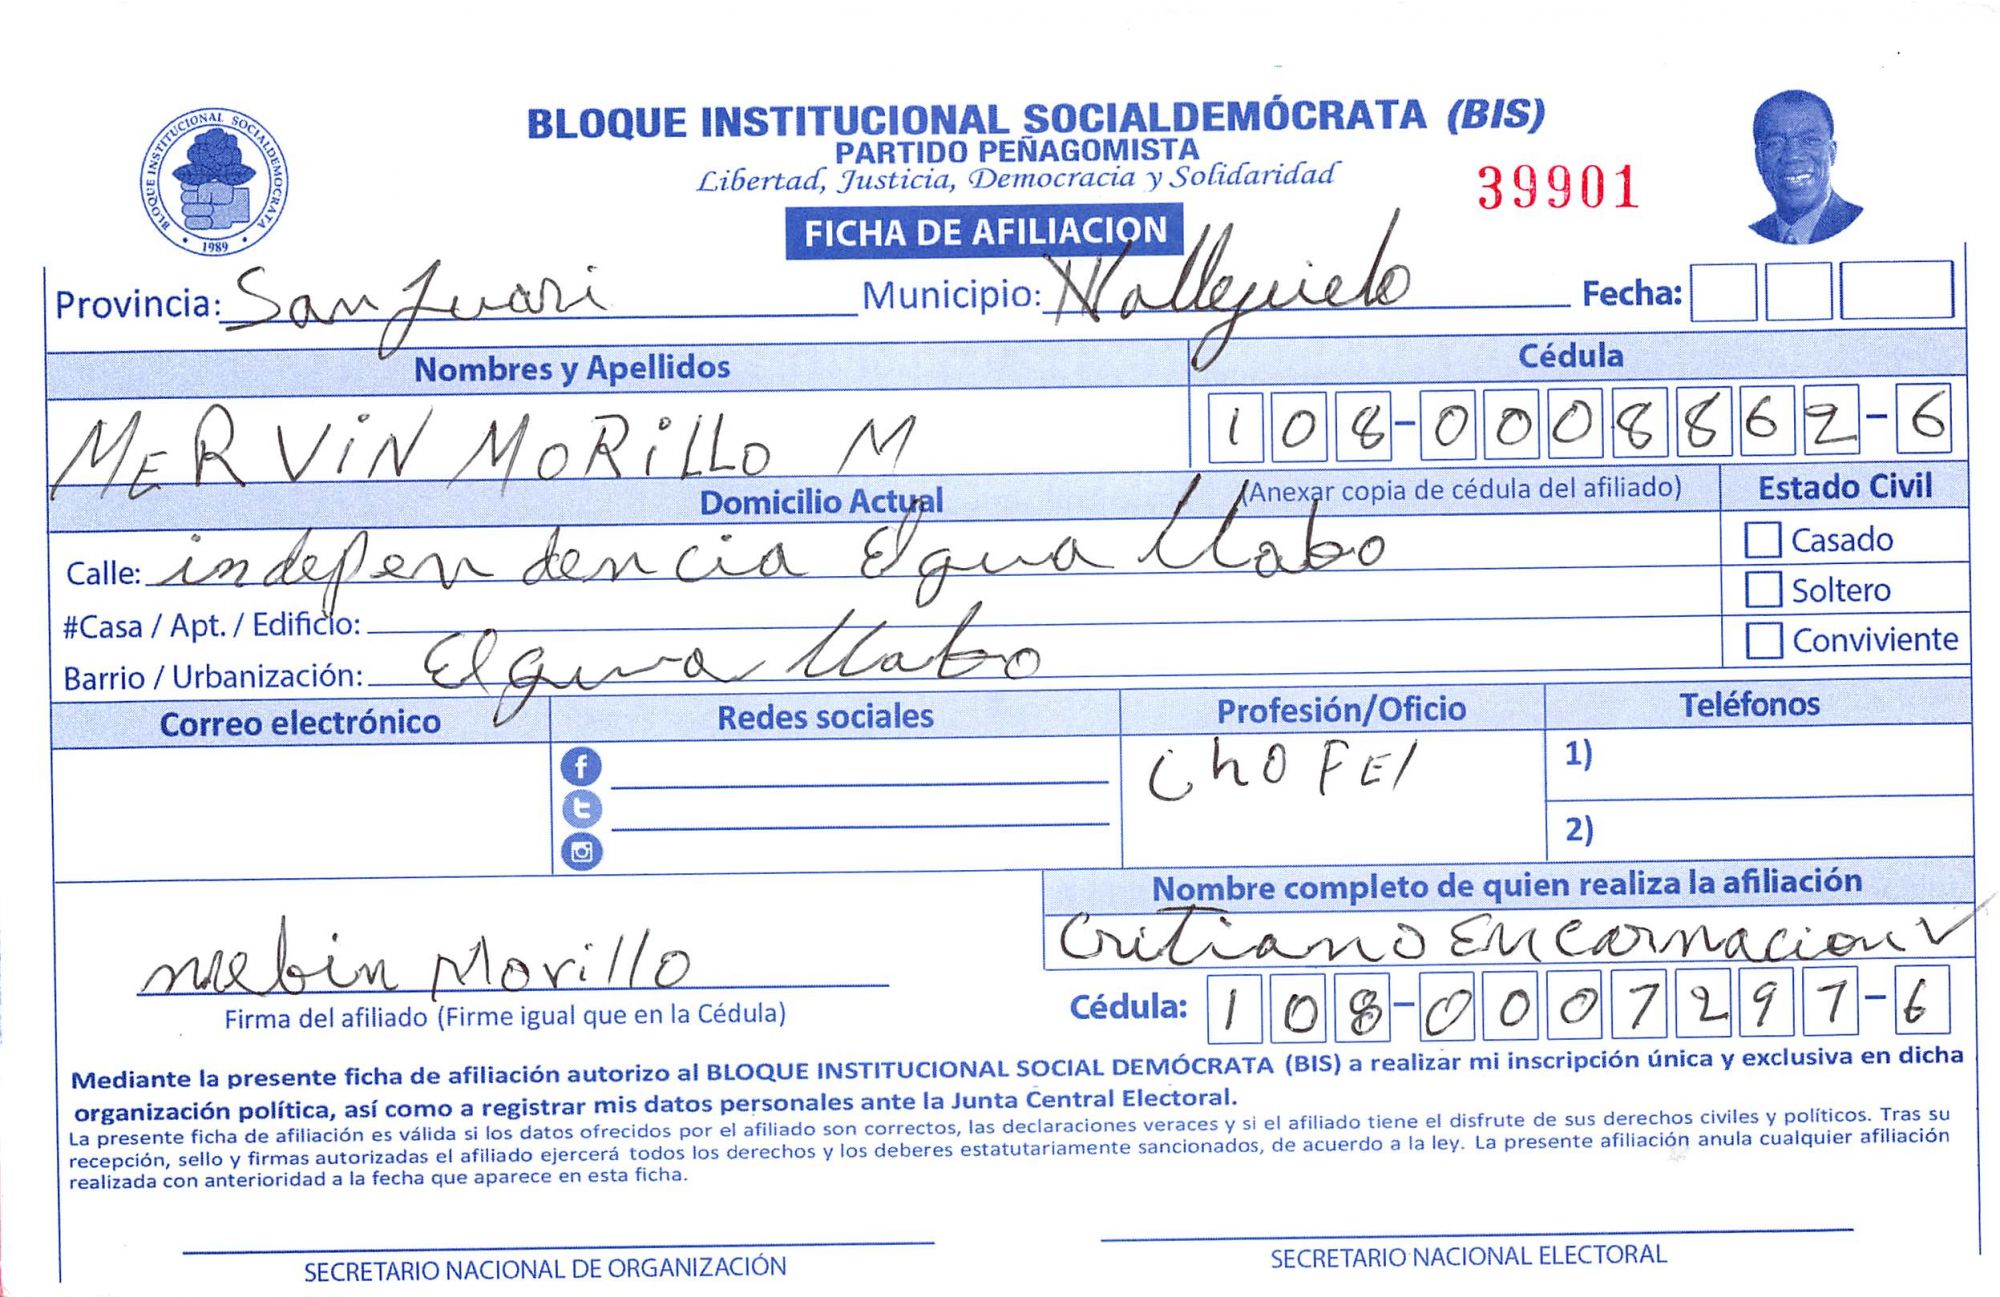 BLOQUE INSTITUCIONAL SOCIALDEMÓCRATA (BIS)
PARTIDO PEÑAGOMISTA
Libertad, Justicia, Democracia y Solidaridad
39901
BLOQUE INSTITUCIONAL SOCIALDEMÓCRATA
1989
FICHA DE AFILIACION
Provincia: San Juan Municipio: Vallejuelo Fecha:
Nombres y Apellidos Cédula
MERVIN MORILLO M 108-0008862-6
Domicilio Actual (Anexar copia de cédula del afiliado) Estado Civil
Calle: independencia Elgua llabo Casado
#Casa / Apt. / Edificio: Soltero
Barrio / Urbanización: Elgua llabo Conviviente
Correo electrónico Redes sociales Profesión/Oficio Teléfonos
chOFEr 1)
2)
Nombre completo de quien realiza la afiliación
Critiano Encarnacion V
mebin Morillo
Firma del afiliado (Firme igual que en la Cédula) Cédula: 108-0007297-6
Mediante la presente ficha de afiliación autorizo al BLOQUE INSTITUCIONAL SOCIAL DEMÓCRATA (BIS) a realizar mi inscripción única y exclusiva en dicha
organización política, así como a registrar mis datos personales ante la Junta Central Electoral.
La presente ficha de afiliación es válida si los datos ofrecidos por el afiliado son correctos, las declaraciones veraces y si el afiliado tiene el disfrute de sus derechos civiles y políticos. Tras su
recepción, sello y firmas autorizadas el afiliado ejercerá todos los derechos y los deberes estatutariamente sancionados, de acuerdo a la ley. La presente afiliación anula cualquier afiliación
realizada con anterioridad a la fecha que aparece en esta ficha.
SECRETARIO NACIONAL DE ORGANIZACIÓN SECRETARIO NACIONAL ELECTORAL